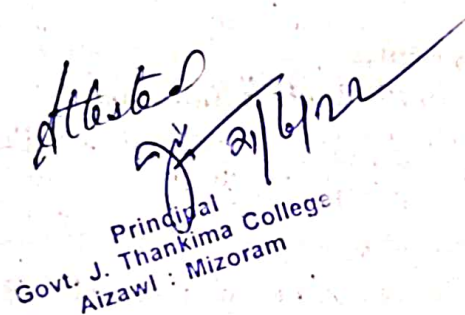 Attested
2/6/22
Principal
Govt. J. Thankima College
Aizawl : Mizoram